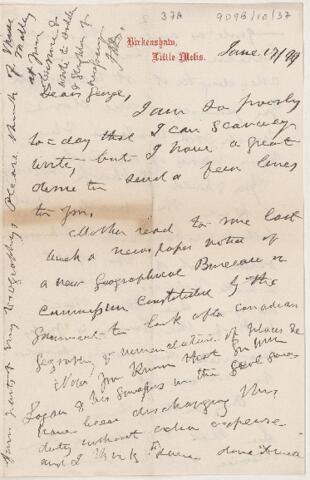 37A
9093/10/37
Birkenshaw,
Little Metis.
June 17/99
Dear George,
I am so poorly
to-day that I can scarcely
write, but I have a great
desire to send a few lines
to you.
Mother read to me last
week a newspaper notice of
a new Geographical Bureau or
Commission constituted by the
Government to look after Canadian
Geography & nomenclature of places &c
Now you know that Sir Wm
Logan & his successors in the Geol Survey
have been discharging this
duty without extra expense
and I think have done
write to
of my Biography. Please think of these